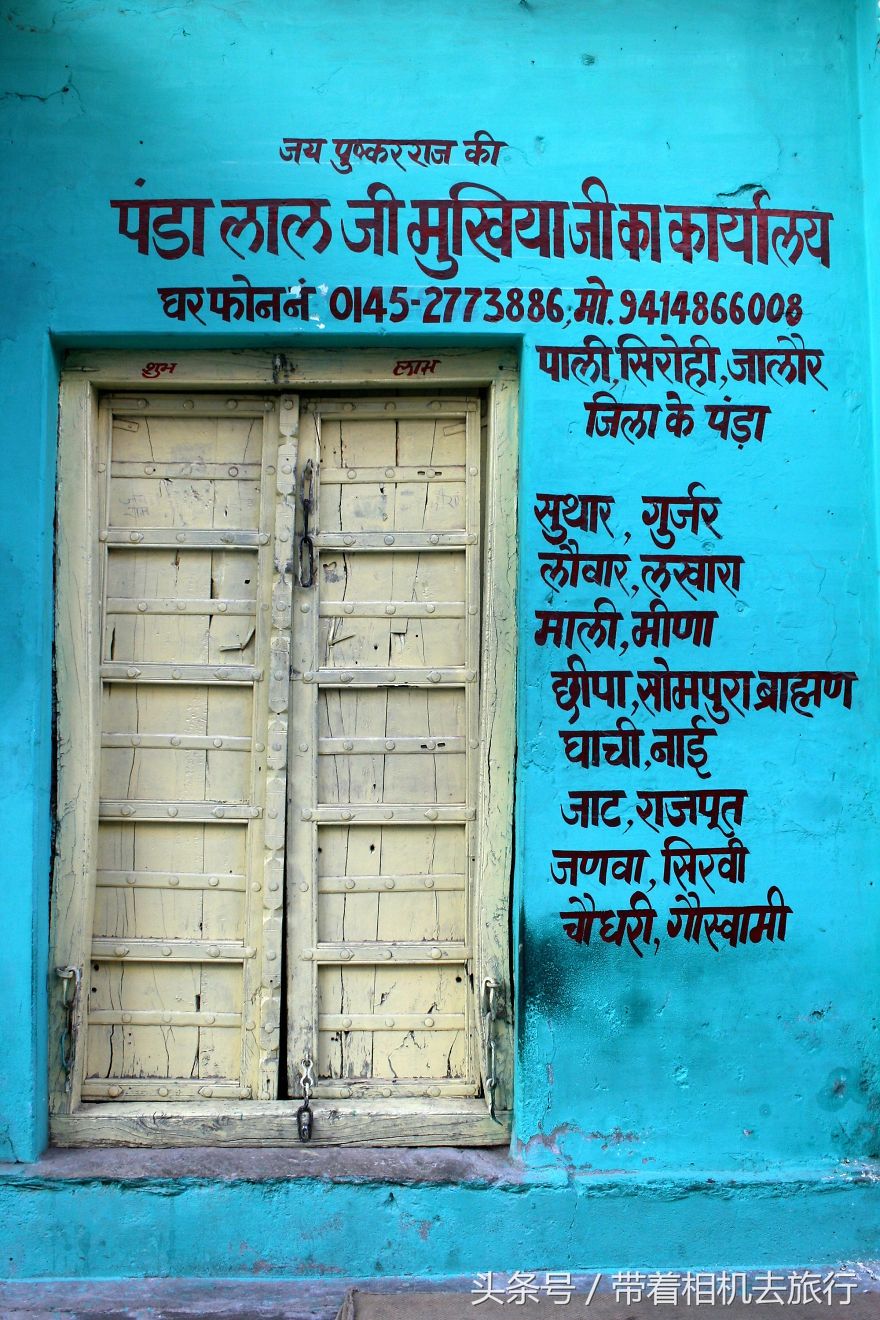 जय पुष्करराज की
पंडा लाल जी मुखिया जी का कार्यालय
घर फोन नं 0145-2773886, मो. 9414866008
शुभ लाभ
पाली, सिरोही, जालौर
जिला के पंड़ा
सुथार, गुर्जर
लौवार, लखारा
माली, मीणा
छीपा, सोमपुरा ब्राह्मण
घाची, नाई
जाट, राजपूत
जणवा, सिरवी
चौधरी, गौस्वामी
头条号 / 带着相机去旅行